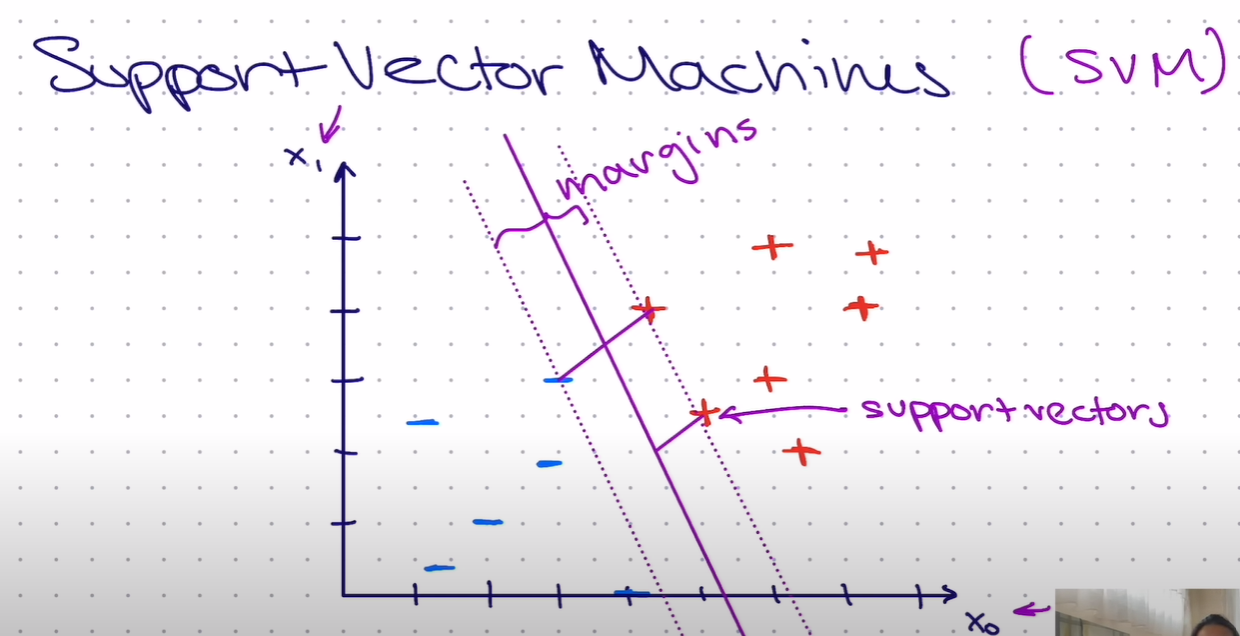 Support Vector Machines (SVM)
margins
x₁
support vectors
x₀